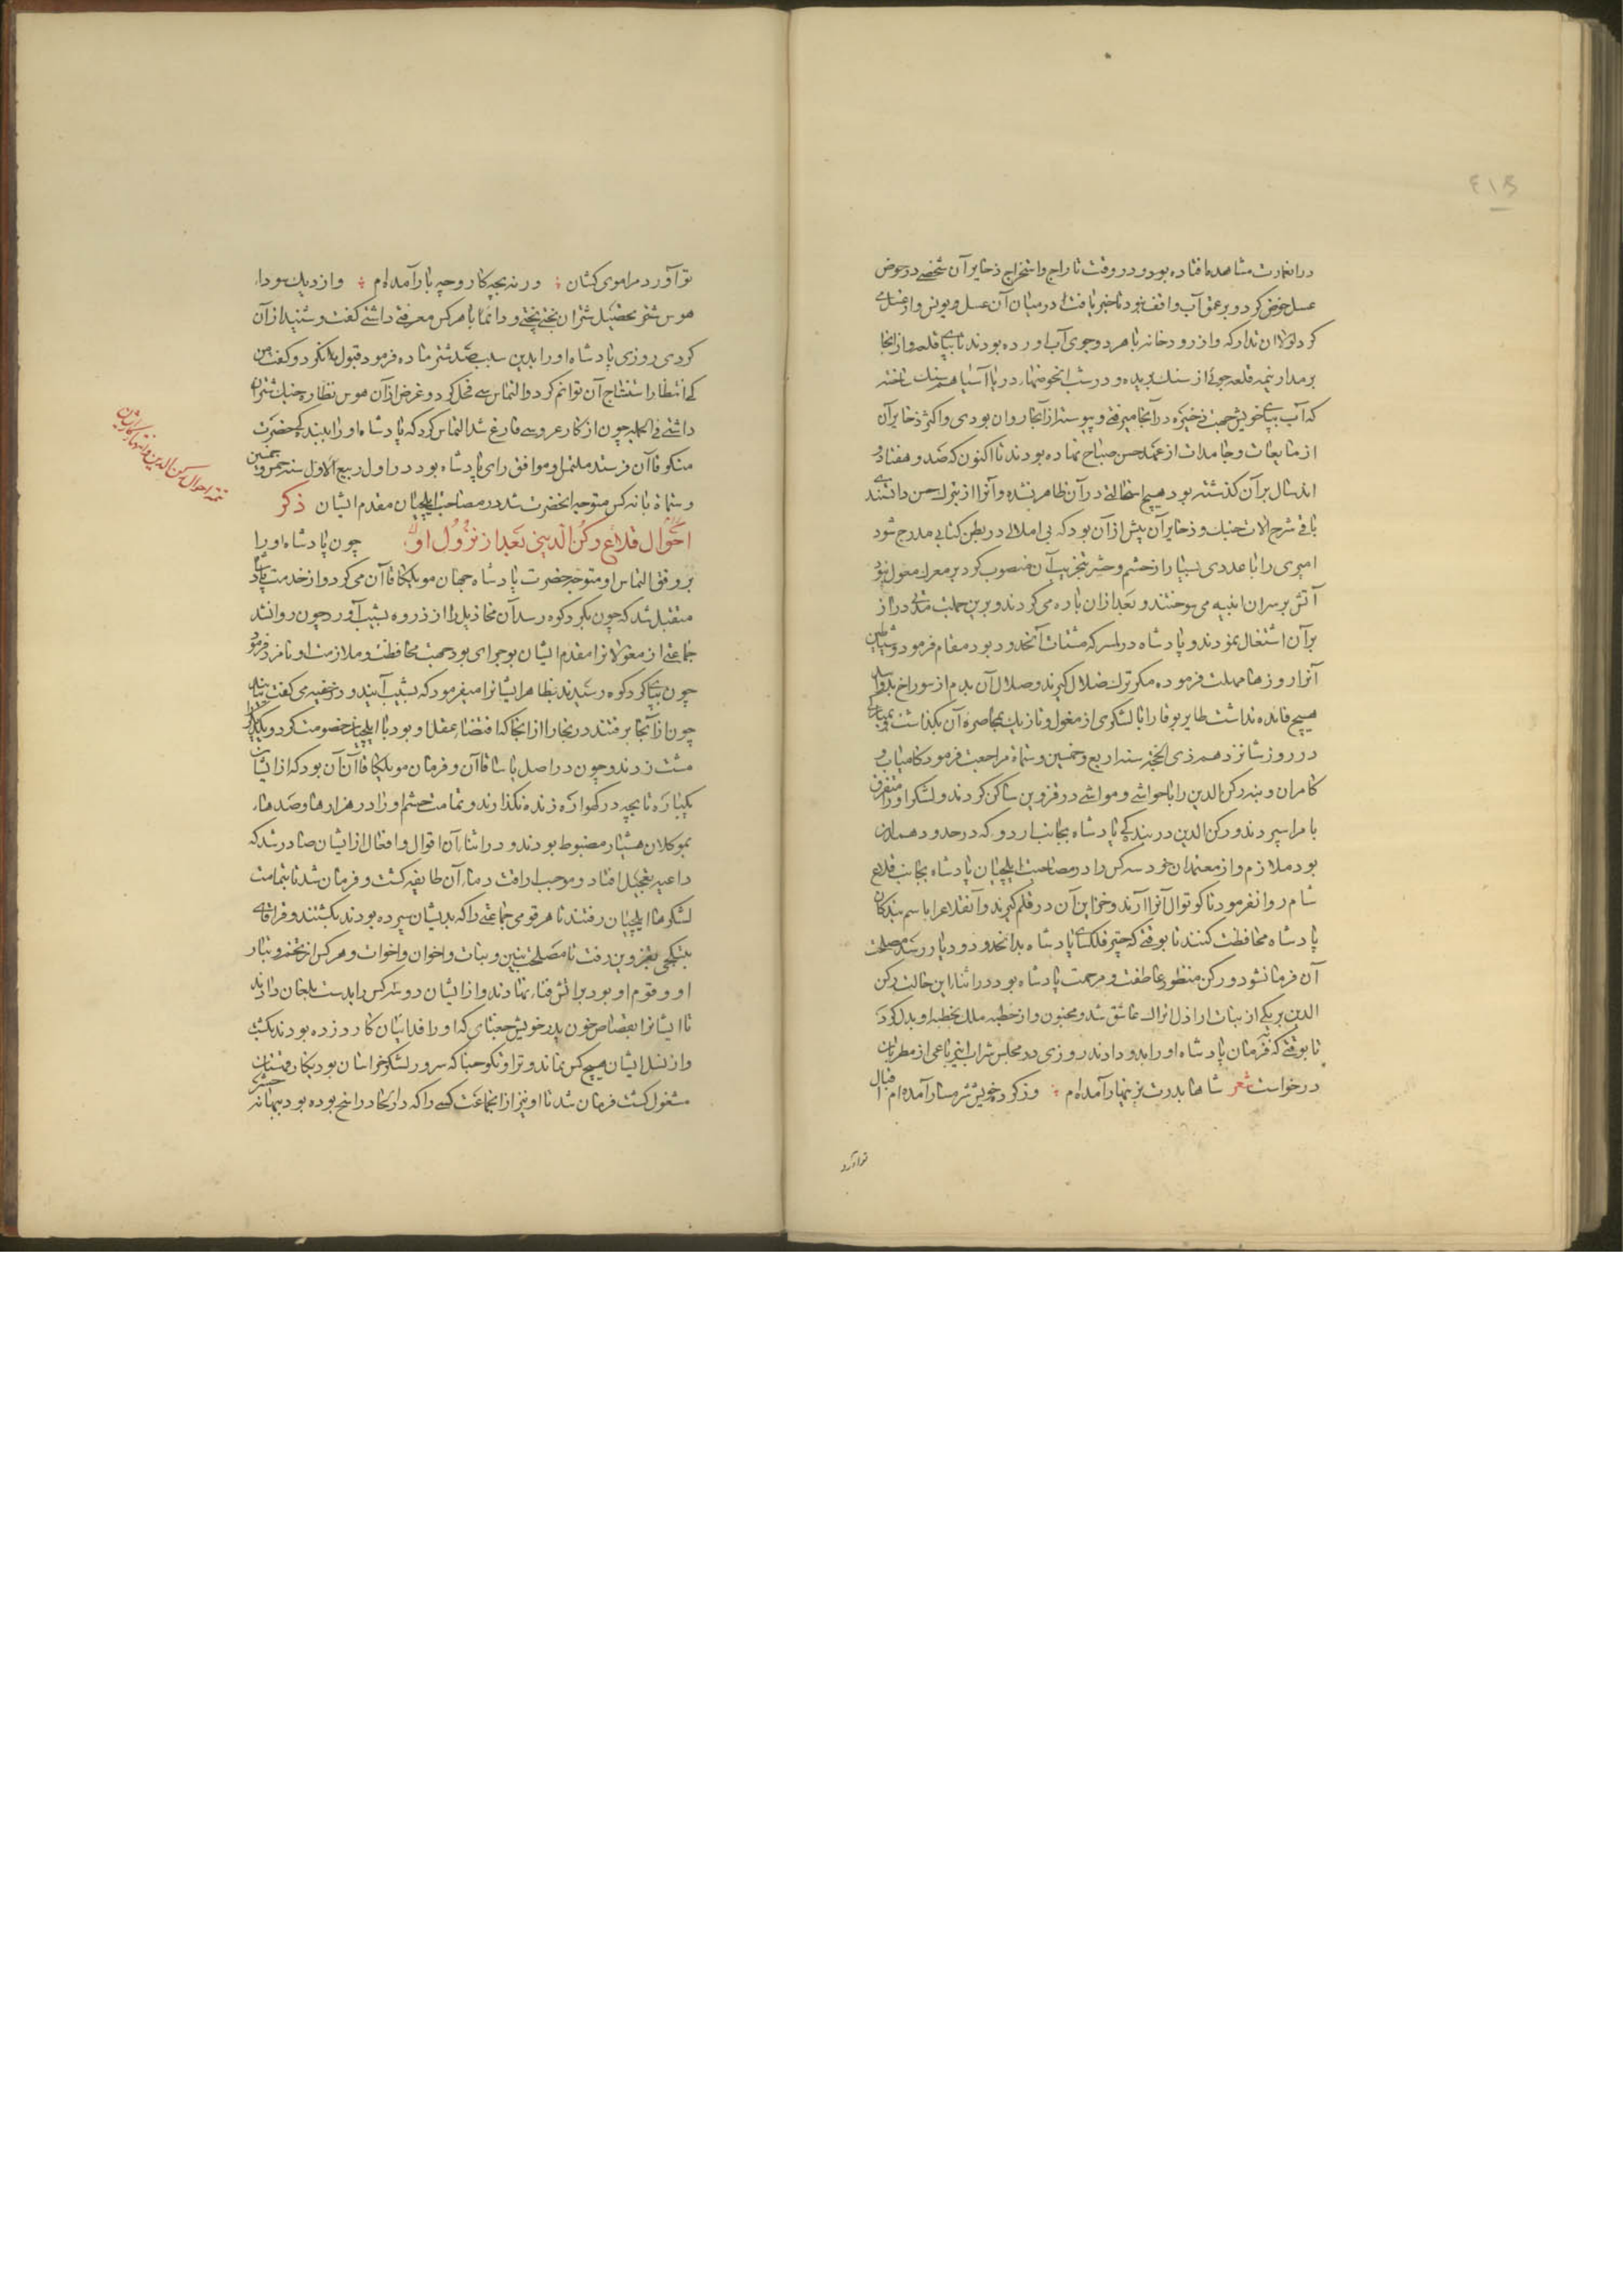 ٤١٣
در انعمارت مشاهده افتاده بود و در وقت تاراج و استخراج ذخایر آن شخصی در حوض
عسل خوض کرد و بر عمق آب واقف نبود تا خبر یافت در میان آن عسل و یونس وار غسلی
کرد لولا ان تدارکه و از رودخانه باهرو جوی آب آورده بودند تا بپای قلعه و از آنجا
بر مدار نیمه قلعه جوئی از سنک بریده و در شیب آن حوضها دریا آسا هم از سنک ساخته
که آب بپای خویش جهت ذخیره در آنجا میرفتی و پیوسته از آنجا روان بودی و اکثر ذخایر آن
از مایعات و جامدات از عهد حسن صباح نهاده بودند تا اکنون که صد و هفتاد و
اند سال بر آن کذشته بود هیچ استحالتی در آن ظاهر نشده و آنرا از تبرک حسن دانستندی
باقی شرح آلات جنک و ذخایر آن بیش از آن بود که بی املالی در بطن کتابی مدرج شود
امیری را با عددی بسیار از حشم و حشر بتخریب آن منصوب کرد بر معرک معول نبود
آتش بر سران ابنیه می سوختند و بعد ازان پاره می کردند و برین جملت مدتی دراز
بر آن اشتغال نمودند و پادشاه در لمسر که مشتات آنحدود بود مقام فرمود و شیاطین
آنرا روزها مهلت فرموده مکر ترک ضلال کیرند و صلال آن بدم از سوراخ بدر آید
هیچ فایده نداشت طایر بوقا را با لشکری از مغول و تازیک بمحاصرهٔ آن بکذاشت و بمبارکی
در روز شانزدهم ذی الحجه سنه اربع و خمسین و ستمائة مراجعت فرمود کامیاب و
کامران و بنه رکن الدین را با حواشی و مواشی در قزوین ساکن کردند و لشکر او را متفرق
بامرا سپردند و رکن الدین در بندکی پادشاه بجانب اردو که در حدود همدان
بود ملازم و از معتمدان خود سه کس را در مصاحبت ایلچیان پادشاه بجانب قلاع
شام روانه فرمود تا کوتوال آنرا آرند و خزاین آن در قلم کیرند و آنقلاع را باسم بندکان
پادشاه محافظت کنند تا بوقتی که چتر فلک سای پادشاه بدانحدود و دیار رسد مصلحت
آن فرمانشود و رکن منظور عاطفت و مرحمت پادشاه بود در اثناء این حالت رکن
الدین بر یکی از بنات اراذل اتراک عاشق شد و مجنون وار خطبه ملک بخطبه او بدل کرد
تا بوقتی که بفرمان پادشاه او را بدو دادند روزی در مجلس شراب این رباعی از مطربان
درخواست شعر شاها بدرت بزینهار آمده ام وز کردهٔ خویش شرمسار آمده ام اقبال
تو آورد
تو آورد مرا موی کشان ورنه بچه کار و چه بار آمده ام و از دیک سوداء
هوس شتر تحصیل شتران بختی پختی و دائما با هر کس معرفتی داشتی کفت و شنید از آن
کردی روزی پادشاه او را بدین سبب صد شتر ماده فرمود قبول نکرد و کفت من
کی انتظار استنتاج آن توانم کرد و التماس سی فحل کرد و غرض از آن هوس نظارهٔ جنک شتران
داشتی فی الجمله چون از کار عروسی فارغ شد التماس کرد که پادشاه او را ببندکی حضرت
منکو قاآن فرستد ملتمس او موافق رای پادشاه بود در اول ربیع الاول سنه خمس و خمسین
و ستمائة با نه کس متوجه انحضرت شد در مصاحب ایلچیان مقدم ایشان ذکر
احوال قلاع رکن الدین بعد از نزول او چون پادشاه او را
بر وفق التماس او متوجه حضرت پادشاه جهان مونکا قاآن می کرد و از خدمت پادشاه
متقبل شد که چون بکرد کوه رسد آن مخاذیل را از ذروه بشیب آورد چون روانشد
جماعتی از مغولانرا مقدم ایشان بوجرای بود جهت محافظت و ملازمت او نامزد فرمود
چون بپای کرد کوه رسیدند بظاهر ایشانرا میفرمود که بشیب آیند و در خفیه می کفت نیایند
چون از آنجا برفتند در بخارا از آنجا که اقتضاء عقل او بود با ایلچیان خصومت کرد و یکدیکر را
مشت زدند و چون در اصل یاسا قاآن و فرمان مونککا قاآن آن بود که از ایشان
یکبارکه تا بچه در کهواره زنده نکذارند و تمامت حشم او را در هزارها و صدها
بموکلان هشیار مضبوط بودند و در اثناء آن اقوال و افعال از ایشان صادر شد که
داعیه تعجیل افتاد و موجب اراقت دماء آن طایفه کشت و فرمان شد تا بتمامت
لشکرها ایلچیان رفتند تا هر قومی جماعتی را که بدیشان سپرده بودند بکشتند و قراقای
بیتکجی بقزوین رفت تا مصلحت بنین و بنات و اخوان و اخوات و هر کس از تخم و تبار
او و قوم او بود بر آتش فنا نهادند و از ایشان دو سه کس را بدست بلجان دادند
تا ایشانرا بقصاص خون پدر خویش جغتای که او را فدائیان کارد زده بودند بکشت
و از نسل ایشان هیچ کس نماند و تراونکو حینا که سرور لشکر خراسان بود بکار قهستان
مشغول کشت فرمان شد تا او نیز از انجماعت کسی را که در الحاد راسخ بوده بود ببهانه حشر
تتمه احوال رکن الدین و انتهاء کار ایشان